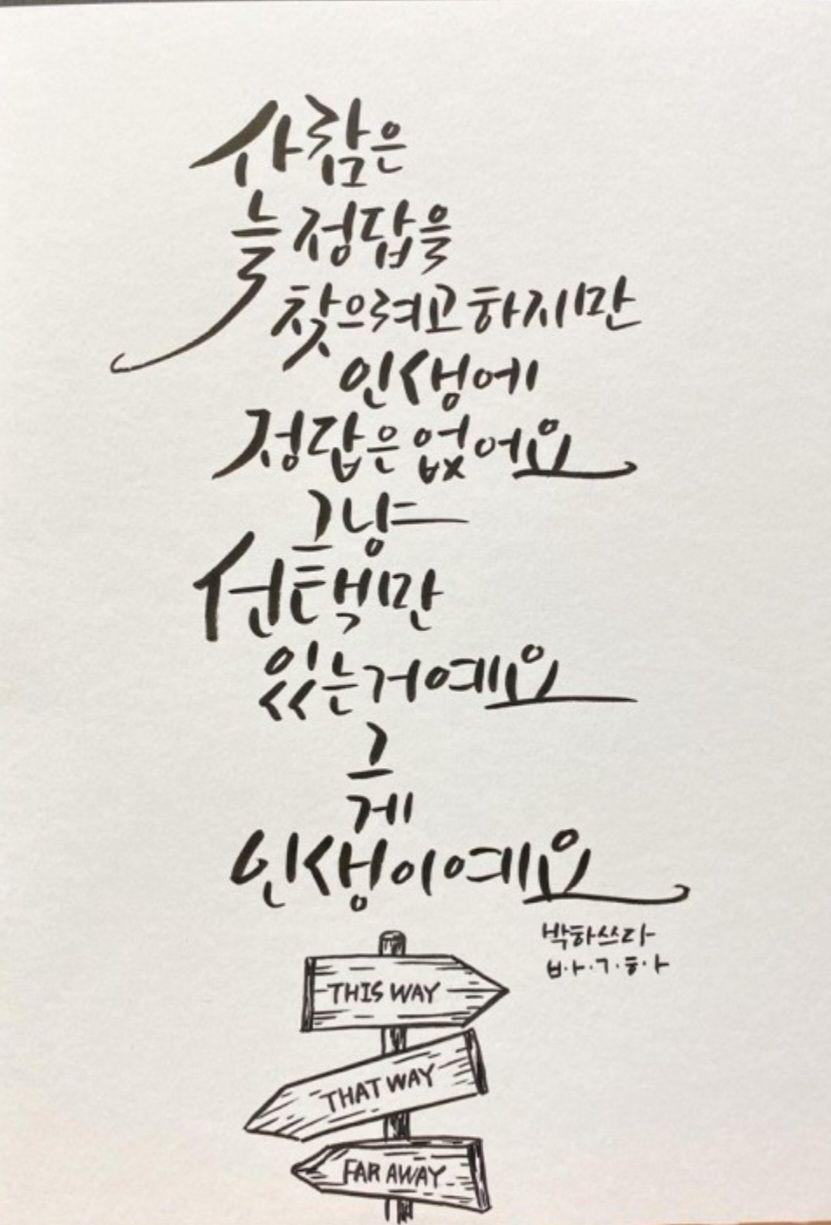 사람은
늘 정답을
찾으려고 하지만
인생에
정답은 없어요
그냥
선택만
있는거예요
그
게
인생이예요
박하쓰다
ㅂㅏ·ㄱ·ㅎㅏ
THIS WAY
THAT WAY
FAR AWAY